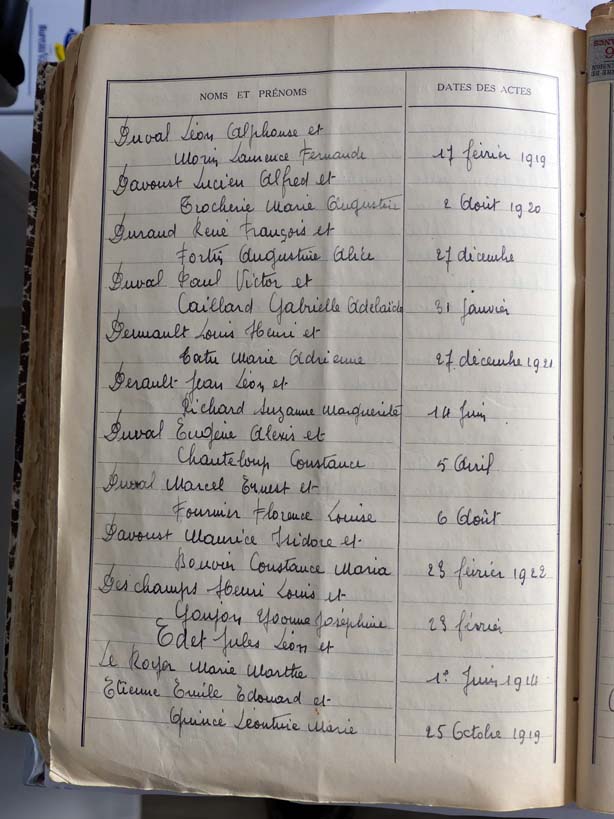 NOMS ET PRÉNOMS DATES DES ACTES
Duval Léon Alphonse et
Morin Laurence Fernande 17 février 1919
Davoust Lucien Alfred et
Trocherie Marie Augustine 2 Août 1920
Durand René François et
Fortin Augustine Alice 27 décembre
Duval Paul Victor et
Caillard Gabrielle Adélaïde 31 janvier
Dermault Louis Henri et
Tatu Marie Adrienne 27 décembre 1921
Derault Jean Léon et
Richard Suzanne Marguerite 14 Juin
Duval Eugène Alexis et
Chanteloup Constance 5 Avril
Duval Marcel Ernest et
Fournier Florence Louise 6 Août
Davoust Maurice Isidore et
Bouvier Constance Maria 23 février 1922
Des champs Henri Louis et
Goujon Yvonne Joséphine 23 février
Edet Jules Léon et
Le Royer Marie Marthe 1er Juin 1914
Etienne Emile Edouard et
Quincé Léontine Marie 25 Octobre 1919